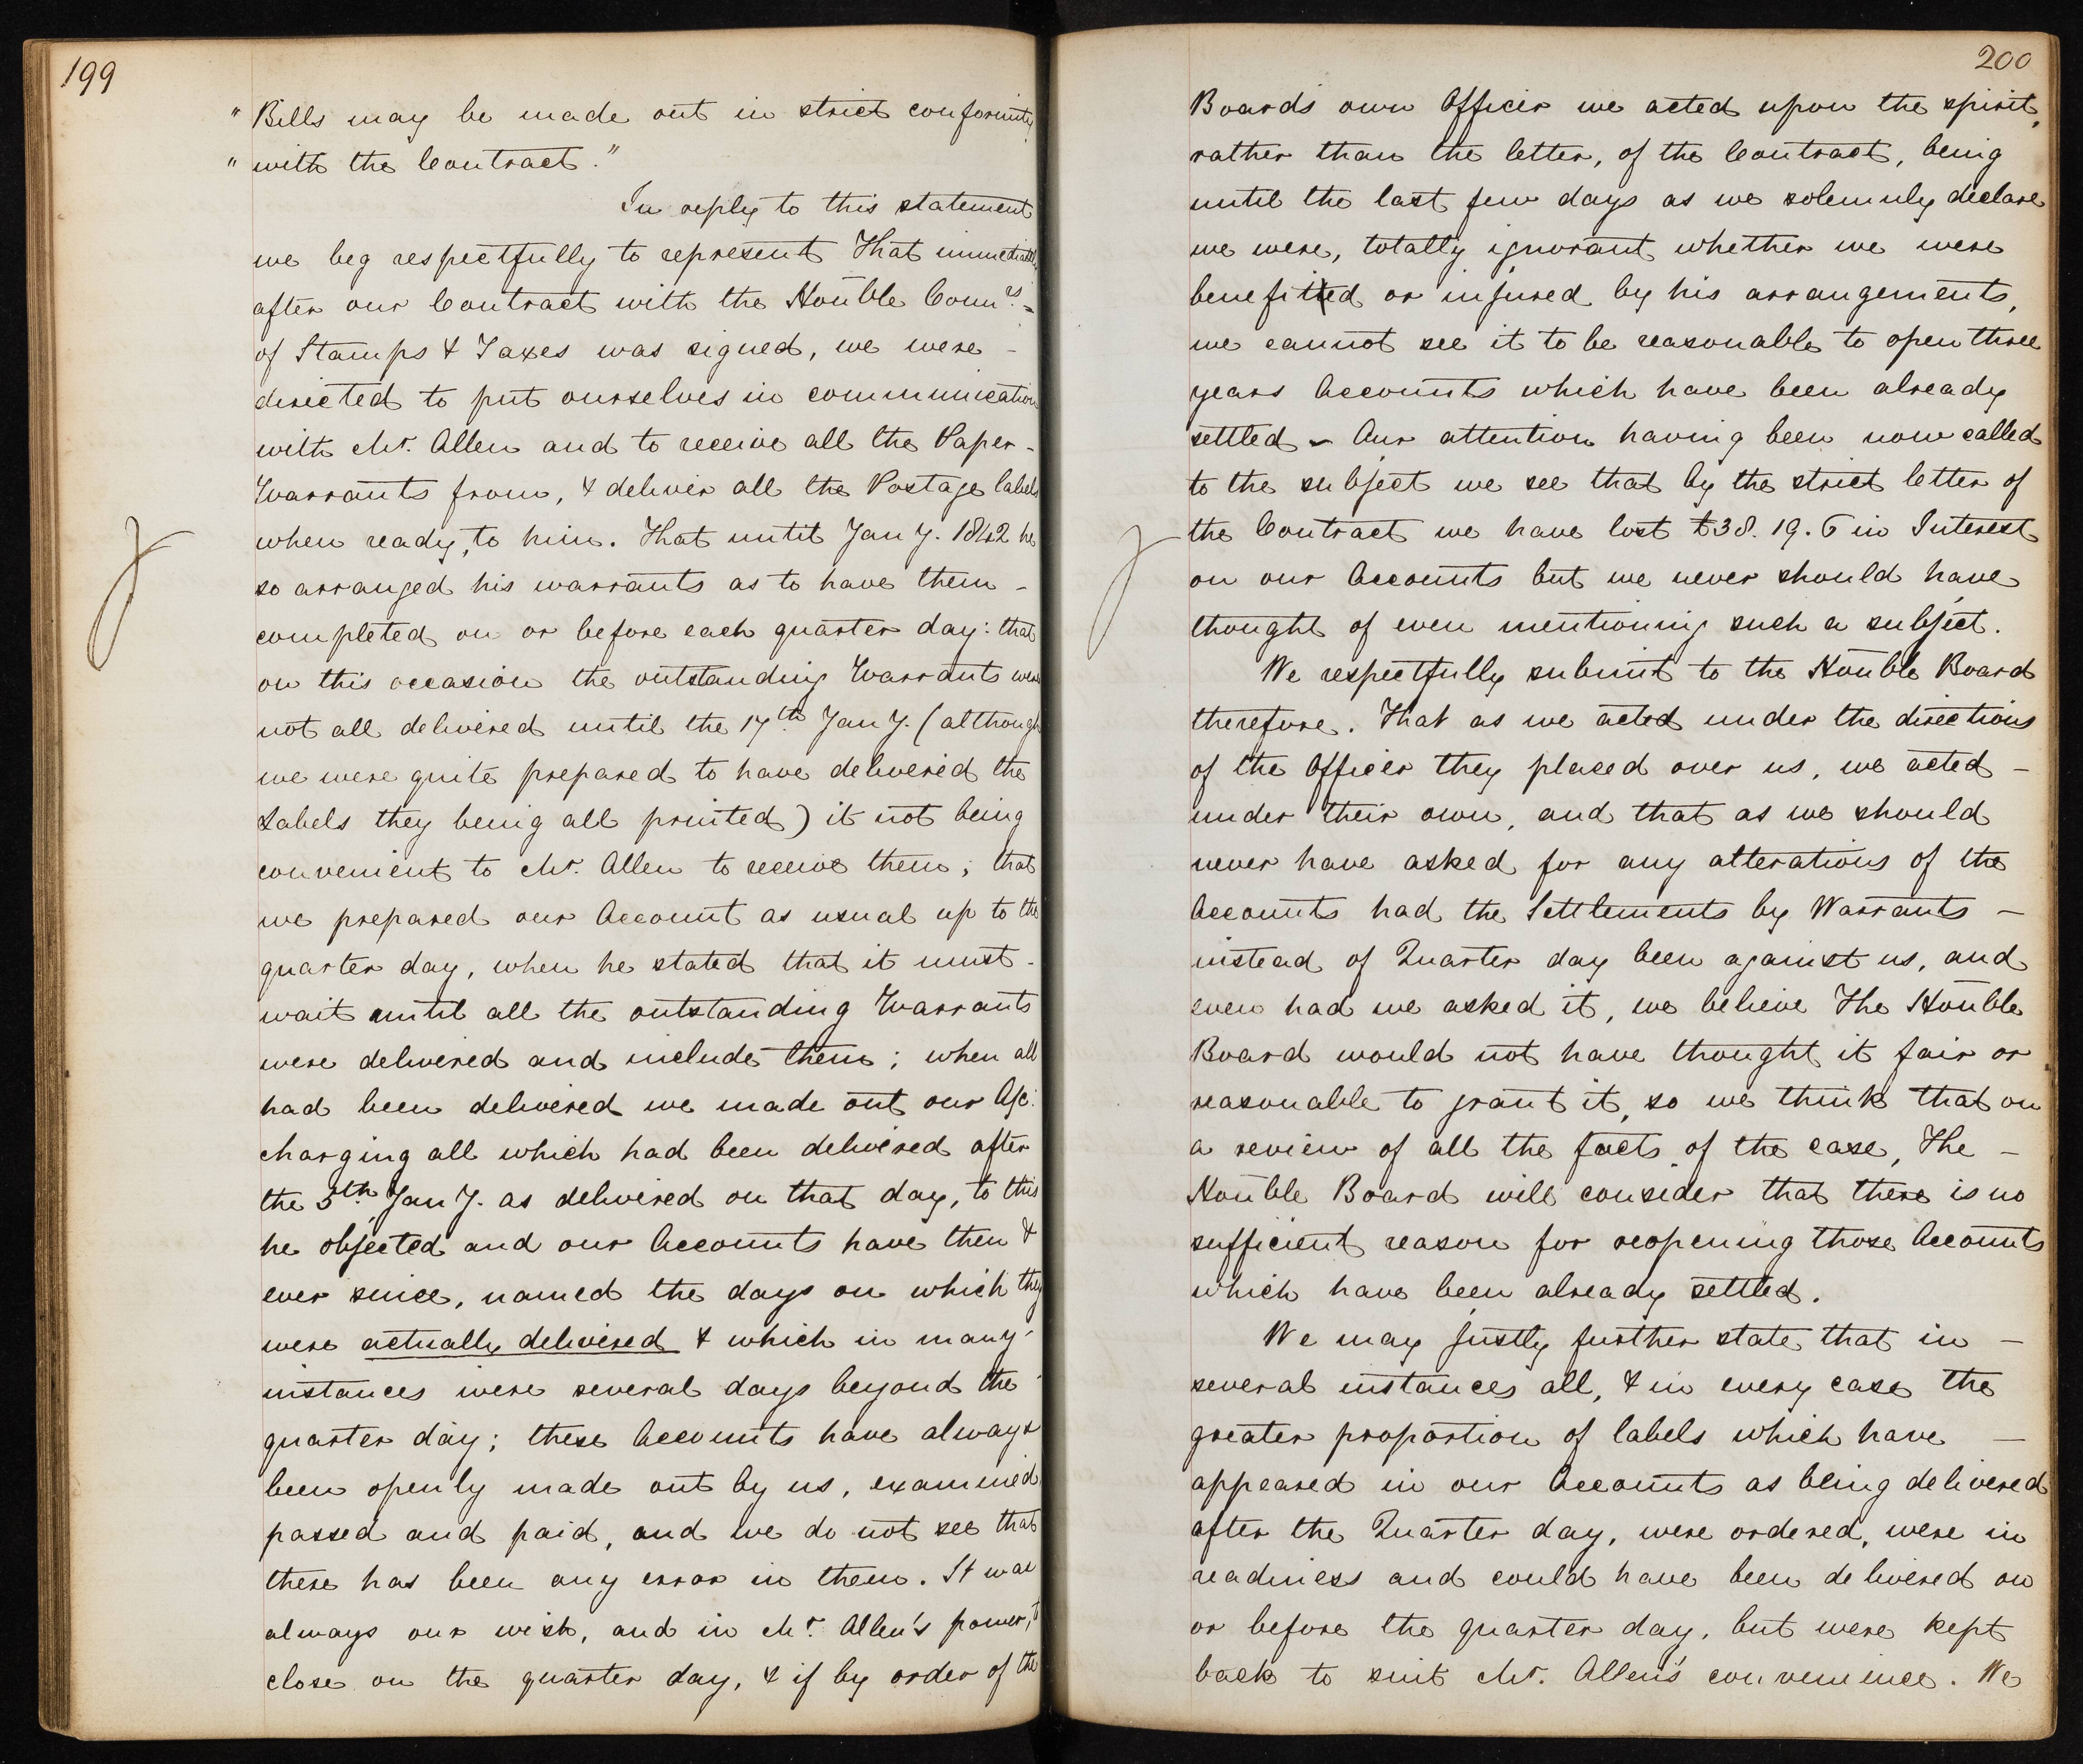 199
" Bills may be made out in strict conformity
" with the Contract."
In reply to this statement
we beg respectfully to represent That immediately
after our Contract with the Honble Comrs. -
of Stamps & Taxes was signed, we were -
directed to put ourselves in communication
with Mr. Allen and to receive all the Paper -
Warrants from, & deliver all the Postage labels
when ready, to him. That until Jany. 1842 he
so arranged his warrants as to have them -
completed on or before each quarter day: that
on this occasion the outstanding Warrants were
not all delivered until the 17th. Jany. (although
we were quite prepared to have delivered the
Labels they being all printed) it not being
convenient to Mr. Allen to receive them; that
we prepared our Account as usual up to the
quarter day, when he stated that it must -
wait until all the outstanding Warrants
were delivered and include them; when all
had been delivered we made out our A/c.
charging all which had been delivered after
the 5th. Jany. as delivered on that day, to this
he objected and our Accounts have then &
ever since, named the days on which they
were actually delivered & which in many -
instances were several days beyond the
quarter day; these Accounts have always
been openly made out by us, examined
passed and paid, and we do not see that
there has been any error in them. It was
always our wish, and in Mr. Allen's power, to
close on the quarter day, & if by order of the
200
Boards own Officer we acted upon the spirit,
rather than the letter, of the Contract, being
until the last few days as we solemnly declare
we were, totally ignorant whether we were
benefitted or injured by his arrangements,
we cannot see it to be reasonable to open three
years Accounts which have been already
settled - Our attention having been now called
to the subject we see that by the strict letter of
the Contract we have lost £38. 19. 6 in Interest
on our Accounts but we never should have
thought of even mentioning such a subject.
We respectfully submit to the Honble Board
therefore. That as we acted under the directions
of the Officer they placed over us, we acted -
under their own, and that as we should
never have asked for any alterations of the
Accounts had the Settlements by Warrants -
instead of Quarter day been against us, and
even had we asked it, we believe The Honble
Board would not have thought it fair or
reasonable to grant it, so we think that on
a review of all the facts of the case, The -
Honble Board will consider that there is no
sufficient reason for reopening those Accounts
which have been already settled.
We may justly further state that in -
several instances all, & in every case the
greater proportion of labels which have -
appeared in our Accounts as being delivered
after the Quarter day, were ordered, were in
readiness and could have been delivered on
or before the quarter day, but were kept
back to suit Mr. Allen's convenience. We